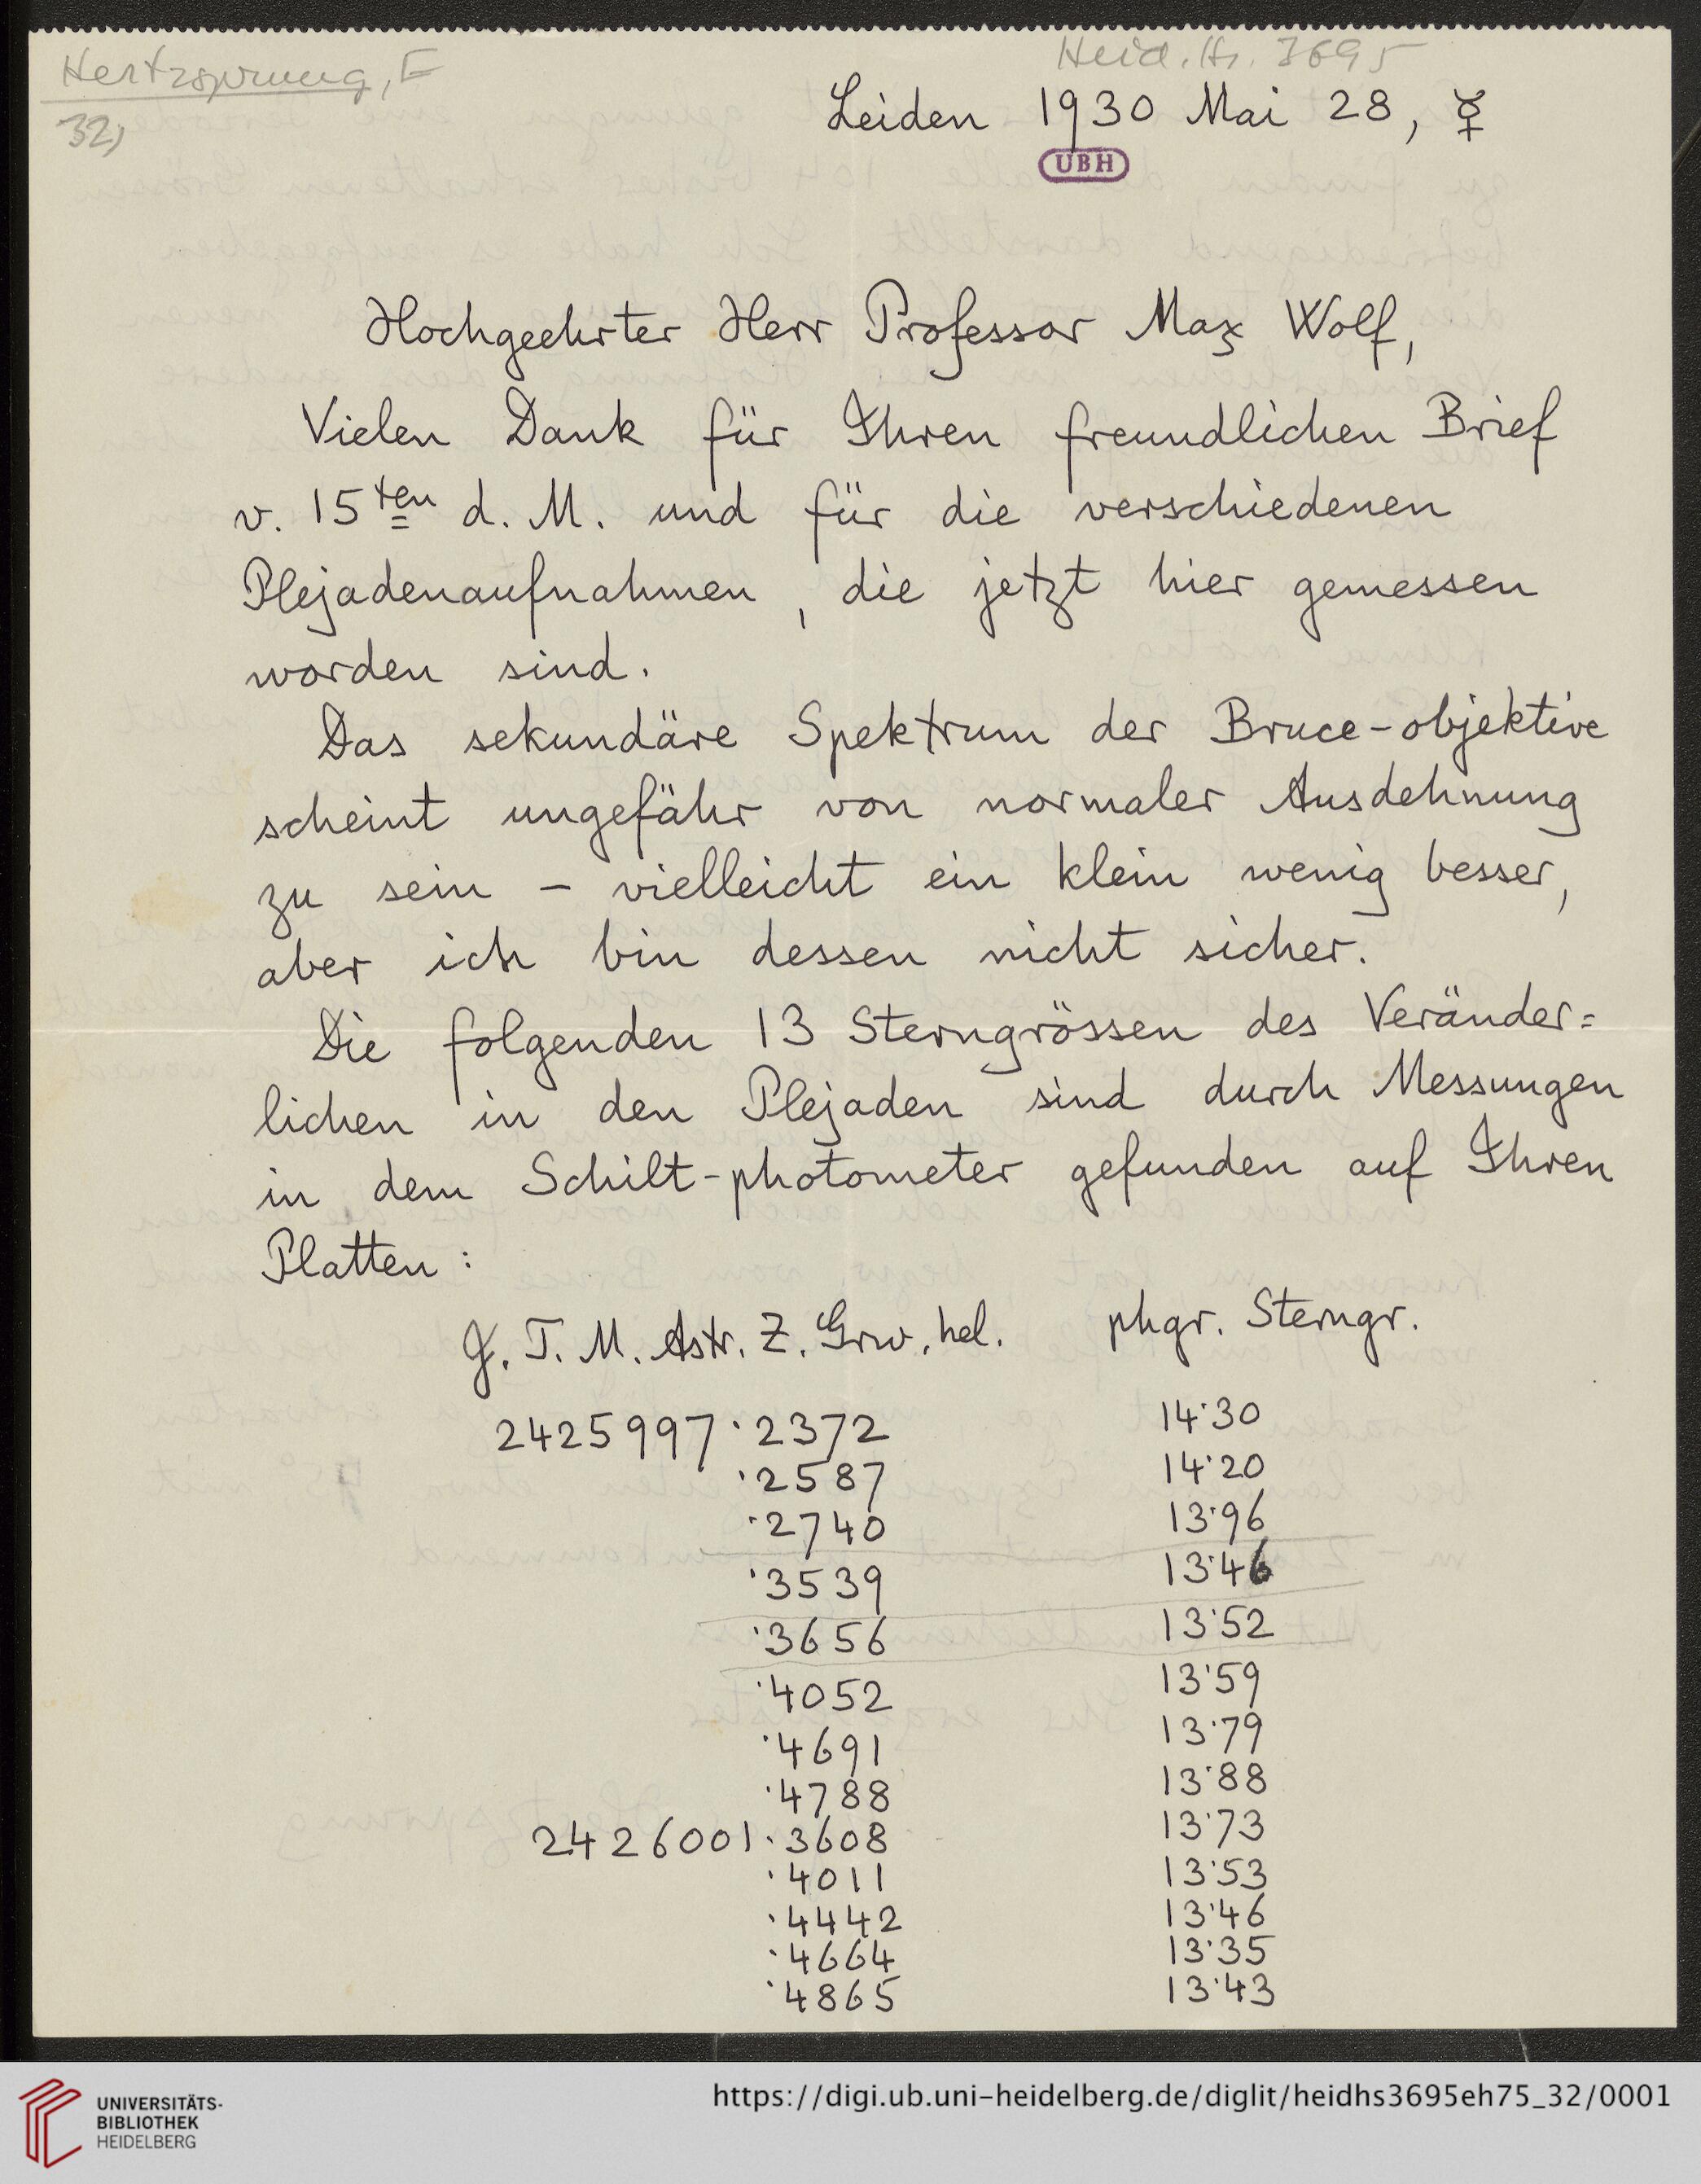 Hertzsprung, E
Heid. Hs. 3695
32)
Leiden 1930 Mai 28, ☿
UBH
Hochgeehrter Herr Professor Max Wolf,
Vielen Dank für Ihren freundlichen Brief
v. 15ten d. M. und für die verschiedenen
Plejadenaufnahmen, die jetzt hier gemessen
worden sind.
Das sekundäre Spektrum der Bruce-objektive
scheint ungefähr von normaler Ausdehnung
zu sein – vielleicht ein klein wenig besser,
aber ich bin dessen nicht sicher.
Die folgenden 13 Sterngrössen des Veränder=
lichen in den Plejaden sind durch Messungen
in dem Schilt-photometer gefunden auf Ihren
Platten:
J. T. M. Astr. Z. Grw. hel. phgr. Sterngr.
2425997·2372 14·30
·2587 14·20
·2740 13·96
·3539 13·46
·3656 13·52
·4052 13·59
·4691 13·79
·4788 13·88
2426001·3608 13·73
·4011 13·53
·4442 13·46
·4664 13·35
·4865 13·43
UNIVERSITÄTS-
BIBLIOTHEK
HEIDELBERG
https://digi.ub.uni-heidelberg.de/diglit/heidhs3695eh75_32/0001